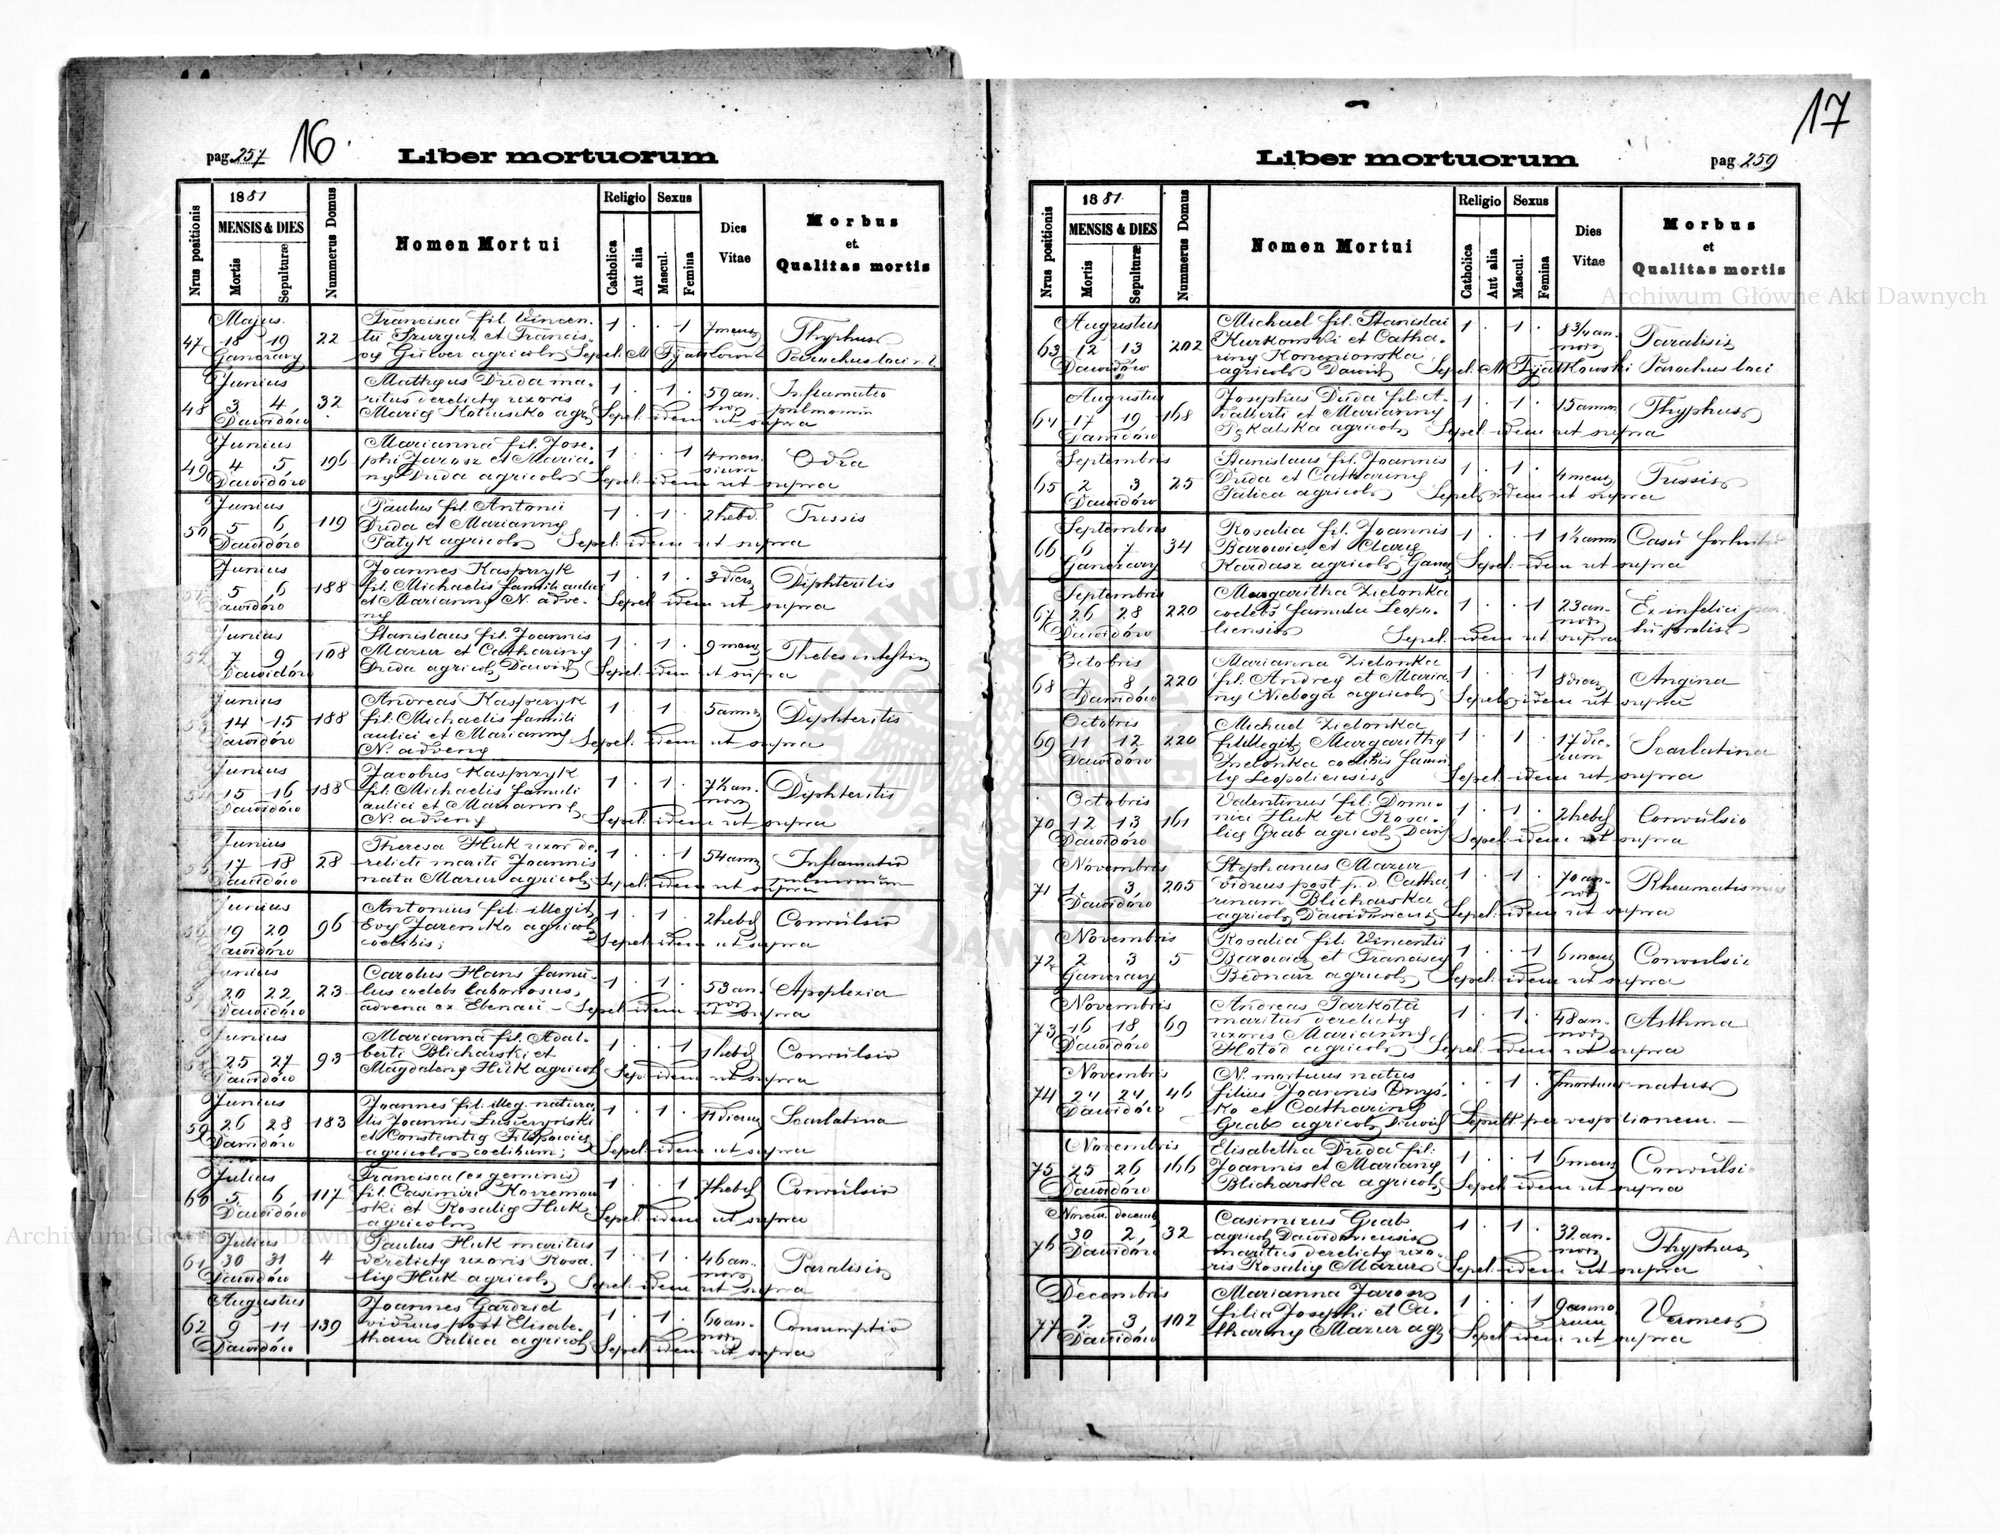 16.
pag. 257
Liber mortuorum
Nrus positionis
1881
MENSIS & DIES
Mortis
Sepulturæ
Nummerus Domus
Nomen Mortui
Religio
Catholica
Aut alia
Sexus
Mascul.
Femina
Dies
Vitae
Morbus
et
Qualitas mortis
Majus
47 18 19 22 Francisca fil. Vincen- 1 . . 1 7 mens Thyphus
tii Szurgut et Francis-
Ganczary agricol Sepel: M. Parochus loci
Junius
48 3 4 32 Matheus Duda ma- 1 . 1 . 59 an- Inflamatio
ritus derelicty uxoris nor pulmonum
Dawidów Sepel: idem ut supra
Junius
49 4 5 196 Marianna fil. Jose- 1 . . 1 4 men- Odra
phi Jarosz et Maria- sium
Dawidów ny Duda agricol Sepel: idem ut supra
Junius
50 5 6 119 Paulus fil. Antonii 1 . 1 . 2 hebd. Tussis
Duda et Marianny
Dawidów Patyk agricol Sepel: idem ut supra
Junius
5 6 188 Joannes Kasprzyk 1 . 1 . 3 dier Diphteritis
fil. Michaelis famili aulici
Dawidów et Marianny N. adve- Sepel: idem ut supra
ny
Junius
7 9 108 Stanislaus fil. Joannis 1 . 1 . 9 mens Thebes intestin
Mazur et Cathariny
Dawidów Duda agricol Dawid Sepel: idem ut supra
Junius
14 15 188 Andreas Kasprzyk 1 . 1 . 5 ann Diphteritis
fil. Michaelis famili
Dawidów aulici et Marianny Sepel: idem ut supra
N. adveny
Junius
15 16 188 Jacobus Kasprzyk 1 . 1 . 7½ an- Diphteritis
fil. Michaelis famili nor
Dawidów aulici et Marianny Sepel: idem ut supra
N. adveny
Junius
17 18 28 Theresa Huk uxor de- 1 . . 1 54 ann Inflamatio
relicti mariti Joannis pulmonum
Dawidów nata Mazur agricol Sepel: idem ut supra
Junius
19 20 96 Antonius fil. illegit 1 . 1 . 2 hebd Convulsio
Evy Jaremko agricol
Dawidów coelibis; Sepel: idem ut supra
Junius
20 22 23 Carolus Hans famu- 1 . 1 . 53 an- Apoplexia
lus coelebs laboriosus, nor
Dawidów advena ex Ebenau - Sepel: idem ut supra
Junius
58 25 27 93 Marianna fil. Adal- 1 . . 1 1 hebd Convulsio
berti Blicharski et
Dawidów Magdaleny Huk agricol Sepel: idem ut supra
Junius
59 26 28 183 Joannes fil. illeg. natura- 1 . 1 . 11 dierum Scarlatina
lis Joannis
Dawidów et Constantiy
agricol coelibum; Sepel: idem ut supra
Julius
60 5 6 117 Francisca (ex geminis) 1 . . 1 7 hebd Convulsio
fil. Casimiri
Dawidów ski et Rosaliy Huk Sepel: idem ut supra
agricol
Julius
61 30 31 4 Paulus Huk maritus 1 . 1 . 46 an- Paralisis
derelicty uxoris Rosa- nor
Dawidów liy Huk agricol Sepel: idem ut supra
Augustus
62 9 11 139 Joannes Gardziel 1 . 1 . 60 an- Consumptio
viduus post Elisabe- nor
Dawidów tham Palica agricol Sepel: idem ut supra
17
Liber mortuorum
pag 259
Nrus positionis
1881
MENSIS & DIES
Mortis
Sepulturæ
Nummerus Domus
Nomen Mortui
Religio
Catholica
Aut alia
Sexus
Mascul.
Femina
Dies
Vitae
Morbus
et
Qualitas mortis
Augustus
63 12 13 202 Michael fil. Stanislai 1 . 1 . 8 3/4 an- Paralisis
Kurkowski et Catha- nor
Dawidów riny
agricol Dawid Sepel: M. Fijałkowski Parochus loci
Augustus
64 17 19 168 Josephus Duda fil. A- 1 . 1 . 15 annor Thyphus
dalberti et Marianny
Dawidów Pękalska agricol Sepel: idem ut supra
Septembris
65 2 3 25 Stanislaus fil. Joannis 1 . 1 . 4 mens Tussis
Duda et Cathariny
Dawidów Palica agricol Sepel: idem ut supra
Septembris
66 6 7 34 Rosalia fil. Joannis 1 . . 1 1½ annor Casu fortuito
Barowicz et Clary
Ganczary Kardasz agricol Sepel: idem ut supra
Septembris
67 26 28 220 Margaritha Zielonka 1 . . 1 23 an- Ex infelici par-
coelebs famula Leopo- nor
Dawidów liensis Sepel: idem ut supra
Octobris
68 7 8 220 Marianna Zielonka 1 . . 1 8 dier Angina
fil. Andrey et Maria-
Dawidów ny Nieboga agricol Sepel: idem ut supra
Octobris
69 11 12 220 Michael Zielonka 1 . 1 . 17 die- Scarlatina
fil illegit: Margarithy rum
Dawidów Zielonka coelibis famu
ly Leopoliensis Sepel: idem ut supra
Octobris
70 12 13 161 Valentinus fil. Domi- 1 . 1 . 2 hebd Convulsio
nici Huk et Rosa-
Dawidów liy Grab agricol Sepel: idem ut supra
Novembris
71 1 3 205 Stephanus Mazur 1 . 1 . 70 an- Rheumatismus
viduus post p. d. Catha- nor
Dawidów rinam Blicharska
agricol Sepel: idem ut supra
Novembris
72 2 3 5 Rosalia fil. Vincentii 1 . . 1 6 mens Convulsio
Barowicz et Francisey
Ganczary Bednarz agricol Sepel: idem ut supra
Novembris
73 16 18 69 Andreas Parkota 1 . 1 . 48 an- Asthma
maritus derelicty nor
Dawidów uxoris Marianny
agricol Sepel: idem ut supra
Novembris
74 24 24 46 N. mortuus natus . . 1 . mortuus natus
filius Joannis
Dawidów ko et Cathariny
Grab agricol Sepult. per vespilionem. -
Novembris
75 25 26 166 Elisabetha Duda fil: 1 . . 1 6 mens Convulsio
Joannis et Marianny
Dawidów Blicharska agricol Sepel: idem ut supra
Novem. decemb
76 30 2 32 Casimirus Grab 1 . 1 . 32 an- Thyphus
agricol Dawidoviensis nor
Dawidów maritus derelicty uxo-
ris Rosaliy Mazur Sepel: idem ut supra
Decembris
77 2 3 102 Marianna Jarosz 1 . . 1 9 anno Vermes
filia Josephi et Ca- rum
Dawidów thariny Mazur agr Sepel: idem ut supra
Archiwum Główne Akt Dawnych
Archiwum Główne Akt Dawnych